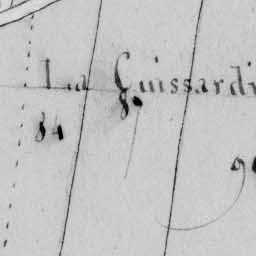 La Guissardi
84